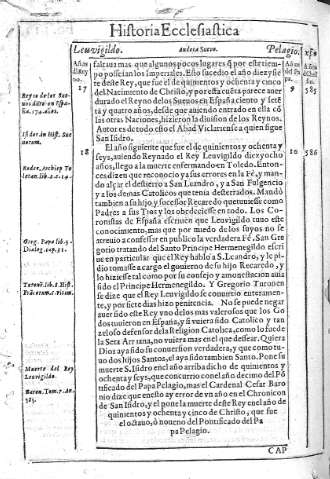 Historia Ecclesiastica
Leuvigildo. Andeca Suevo. Pelagio.
Años del Rey.
17
Reyno de los Suevos duro en España, 174. años.
Isidor. in Hist. Suevorum.
18
Roder. Archiep. Toletan. lib. 2. c. 14.
Greg. Papa lib. 3. Dialog. cap. 31.
Muerte del Rey Leuvigildo.
Baron. Tom. 7. An.
9 585
10 586
faltaua mas que algunos pocos lugares q̃ por este tiempo
possehian los Imperiales. Esto sucedio el año diez y siete
deste Rey, que fue el de quinientos y ochenta y cinco
del Nacimiento de Christo, y por esta cuẽta parece auer
durado el Reyno de los Sueuos en España ciento y setẽta
y quatro años, desde que auiendo entrado en ella cõ
las otras Naciones, hizieron la diuision de los Reynos.
Autor es de todo esto el Abad Viclariense a quien sigue
San Isidro.
El año siguiente que fue el de quinientos y ochenta y
seys, auiendo Reynado el Rey Leuvigildo diez y ocho
años, llego a la muerte enfermando en Toledo. Entonces
dizen que reconocio ya sus errores en la Fè, y mandò
alçar el destierro a San Leandro, y a San Fulgencio
y a los demas Catolicos que tenia desterrados. Mandò
tambien a su hijo, y sucessor Recaredo que tuuiesse como
Padres a sus Tios y les obedeciesse en todo. Los Coronistas
de España escriuen que Leuvigildo tuuo este
conocimiento, mas que por miedo de los suyos no se
atreuio a confessar en publico la verdadera Fè, San Gregorio
tratando del Santo Principe Hermenegildo escriue
en particular que el Rey hablo a S. Leandro, y le pidio
tomasse a cargo el gouierno de su hijo Recaredo, y
lo hiziesse tal como por su consejo y amonestacion auia
sido el Principe Hermenegildo. Y Gregorio Turonense
dize que el Rey Leuvigildo se conuirtio enteramente,
y por siete dias hizo penitencia. No se puede negar
auer sido este Rey vno de los mas valerosos que los Godos
tuuieron en España, y si vuiera sido Catolico y tan
zeloso defensor de la Religion Catolica, como lo fue de
la Seta Arriana, no vuiera mas en el que dessear. Quiera
Dios aya sido su conuersion verdadera, y que como tuuo
dos hijos Santos, el aya sido tambien Santo. Pone su
muerte S. Isidro en el año arriba dicho de quinientos y
ochenta y seys, que concurrio con el año decimo del Põtificado
del Papa Pelagio, mas el Cardenal Cesar Baronio
dize que en esto ay error de vn año en el Chronicon
de San Isidro, y el pone la muerte deste Rey en el año de
quinientos y ochenta y cinco de Christo, que fue
el octauo, ò noueno del Pontificado del Papa
Pelagio.
CAP